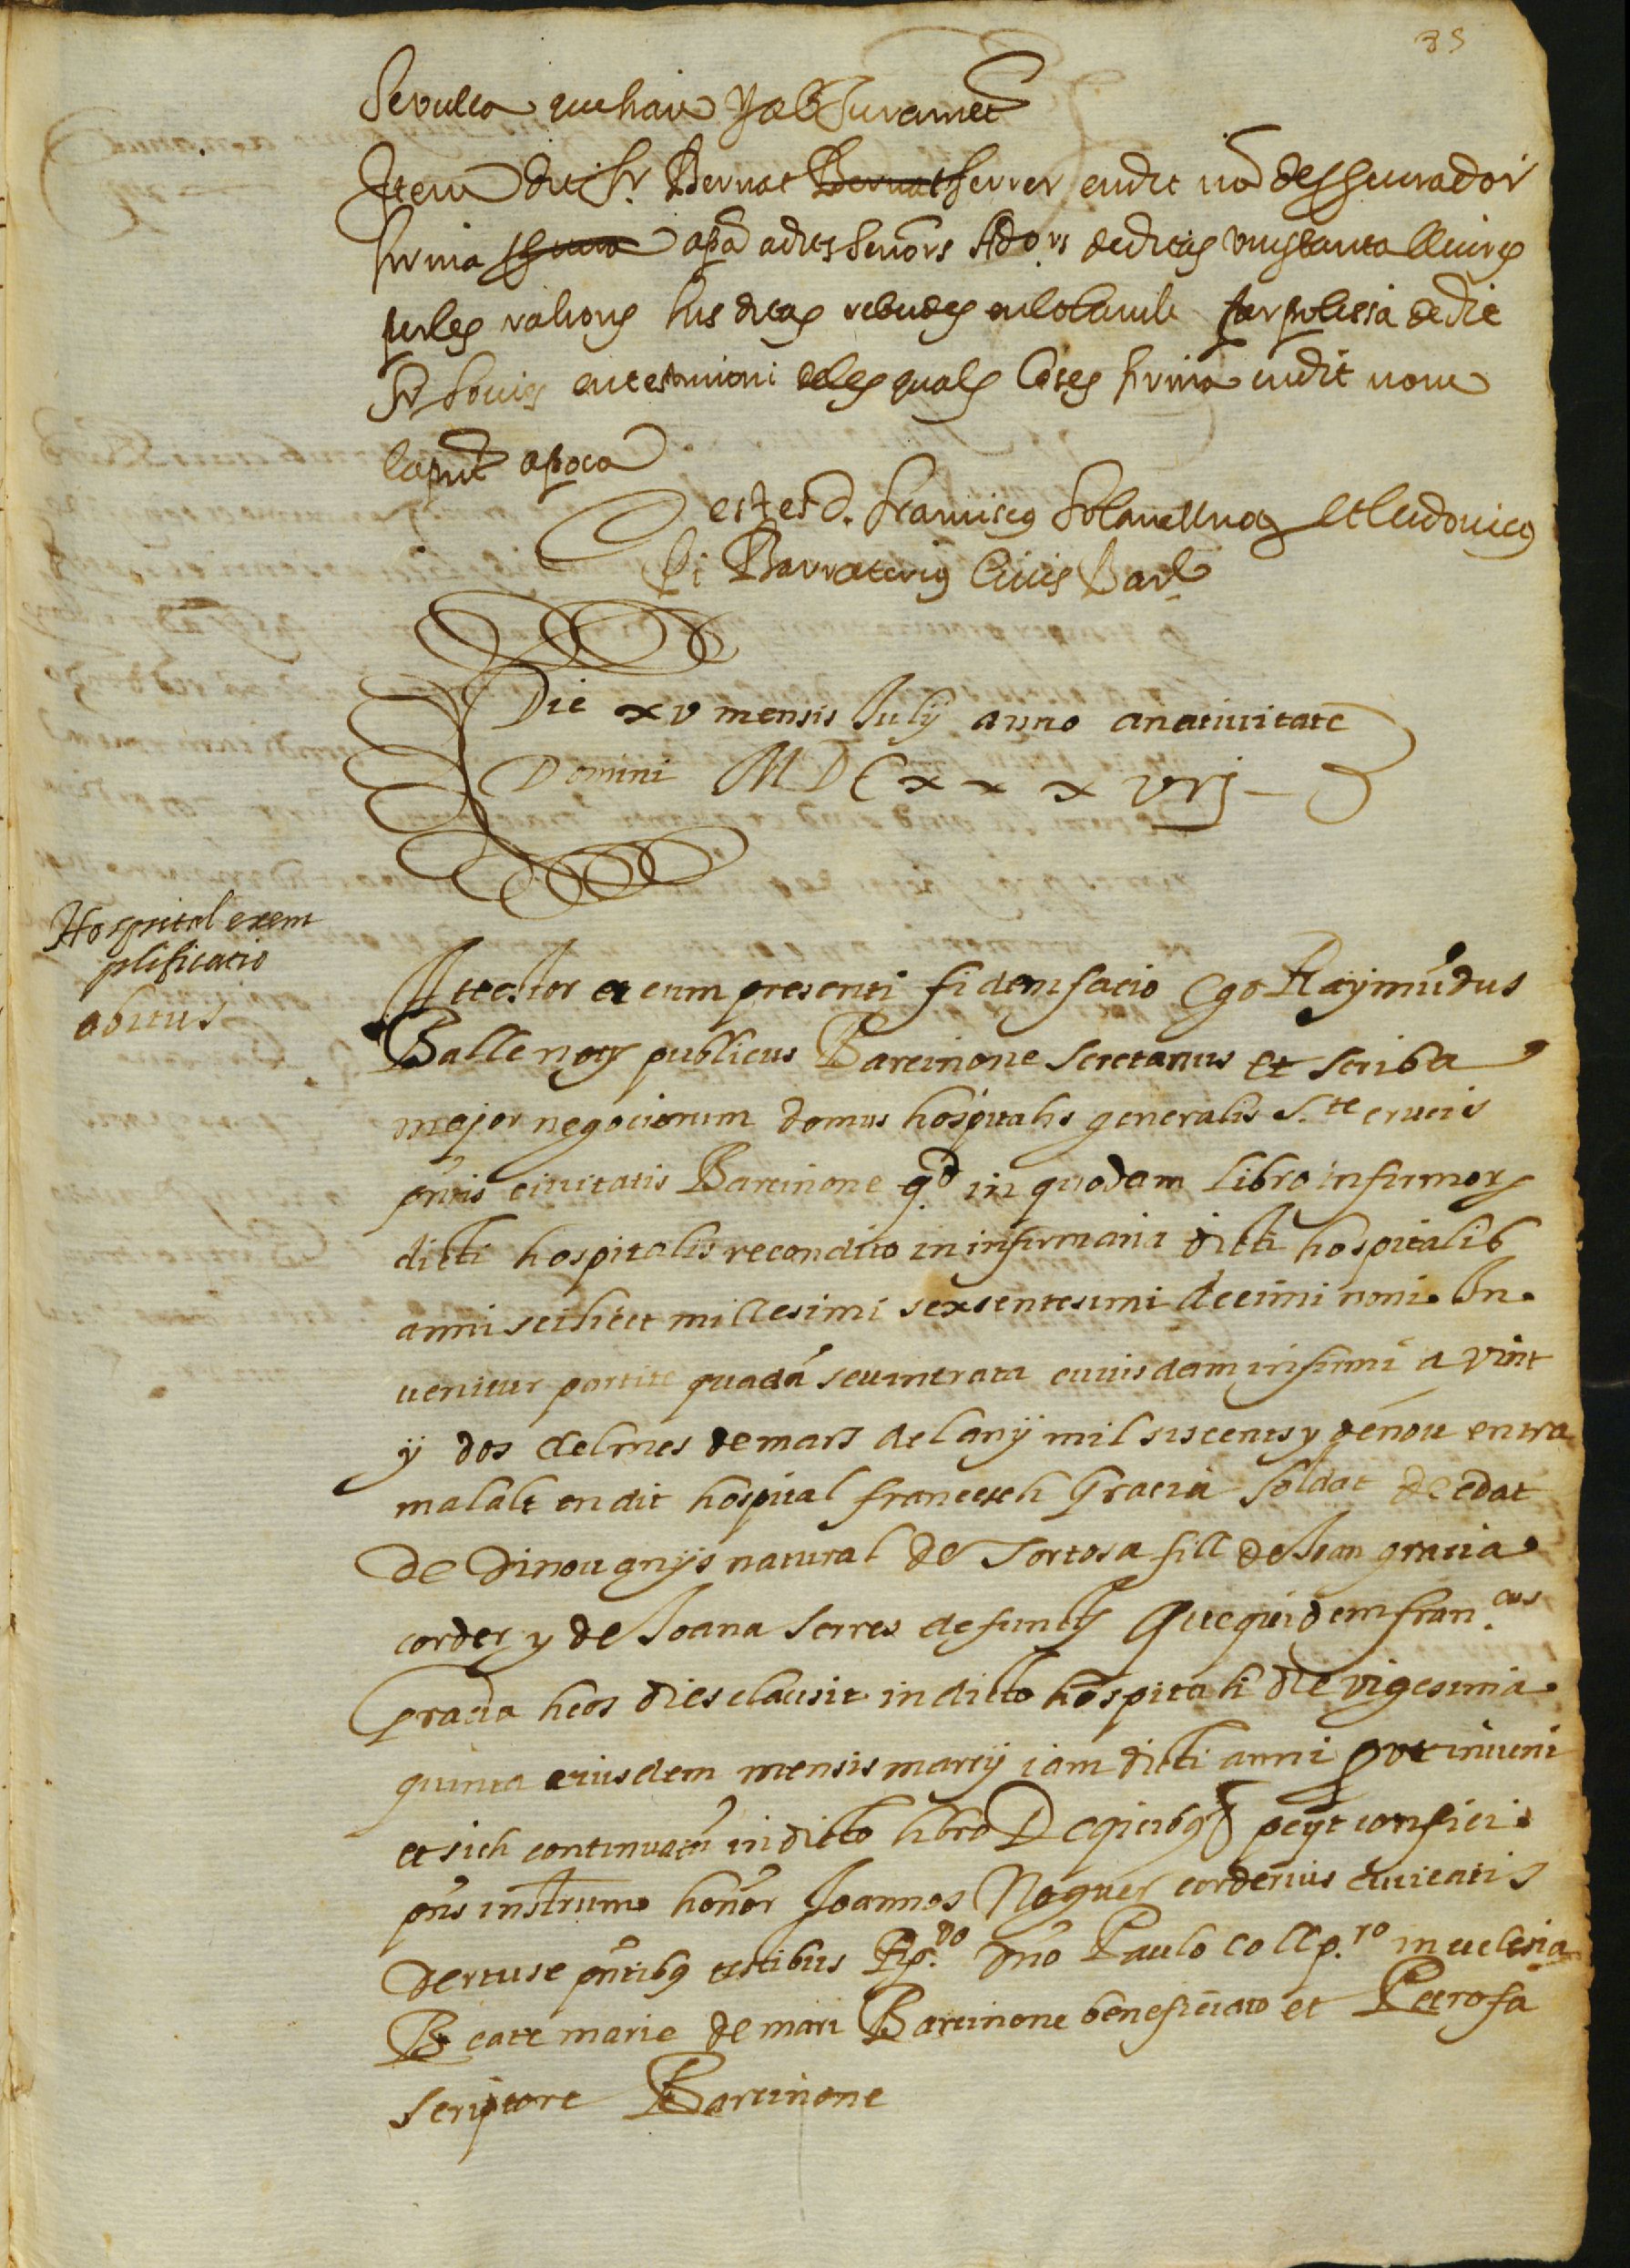 35
que haie ab Jurament
Item dit Sr. Bernat Bernat ferrer en dit nō de procurador
firma apā a dits Senors Ado.rs de dites vuytanta lliures
per les rahons sus dites rebudes en lo taula per polissa de dit
Sr en testimoni de les quals Coses firma en dit nom
la pnt apoca
testes d. franciscus et Ludovicus
Barraterius Civis Barc
Die xv mensis July anno anativitate
Domini M D C x x x vij
Hospital exem
plificatio
obitus
Attestor et cum presenti fidem facio Ego Raymundus
Balle notȝ publicus Barcinone Secretarius et scriba
major negociorum domus hospitalis generalis S.te crucis
pñtis civitatis Barcinone q.d in quodam libro infirmorȝ
dicti hospitalis recondito in infirmaria dicti hospitalis
anni scilicet millesimi sexsentesimi decimi noni. In
venitur partite quadā seu intrata cuiusdam infirmi a vint
y dos del mes de mars del any mil siscents y dénou entra
malalt en dit hospital francesch Gracia soldat de edat
de dinou anys natural de Tortosa fill de Joan gracia
corder y de Joana serres defuncts Que quidem fran.cus
gracia heos dies clausit in dicto hospitali die vigesima
quinta eiusdem mensis marcij iam dicti anni put inveni
et sich continuatū in dicto libro De quibȝ petijt confici
pñs instrumᵒ honor Joannes Noguer corderius civitatis
Dertuse pñtibȝ testibus R.do dño Paulo Coll p.ro in eclesia
Beate marie de mari Barcinone beneficiato et Petro fa
scriptore Barcinone